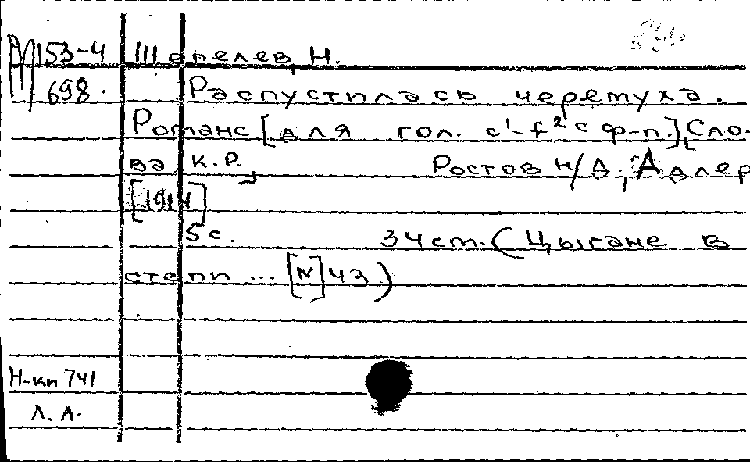 М153-4 Шепелев, Н.
698. Распустилась черемуха.
Романс [для гол. c¹-f² с ф-п.], Сло-
ва К.Р. Ростов н/Д, Адлер
[1914]
5с. 34см. (Цыгане в
степи ... [N] 43)
Н-кп 741
Л. А.